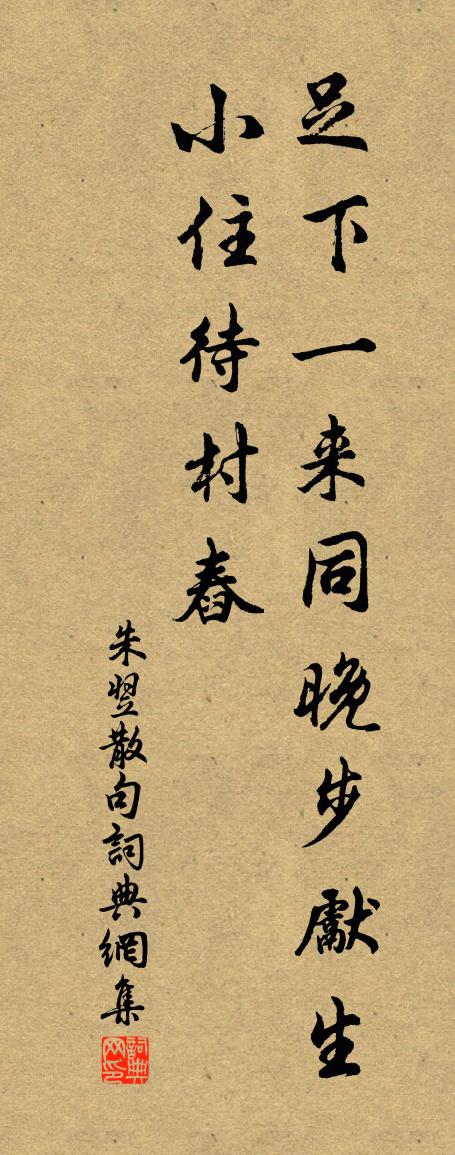 足下一来同晚步獻生
小住待村舂
朱翌散句詞典網集
詞典网印